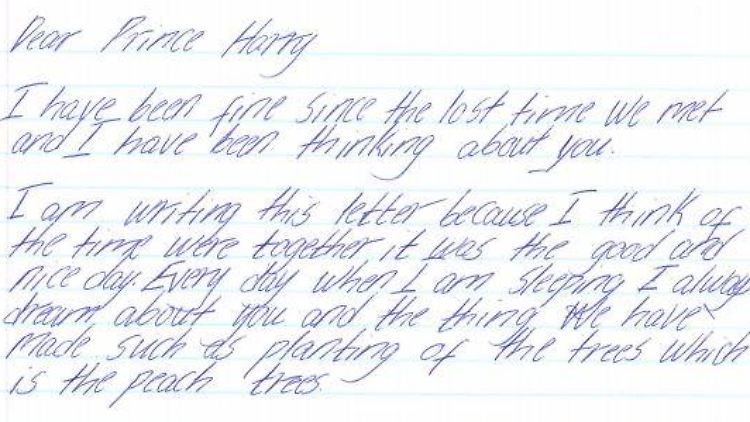 Dear Prince Harry
I have been fine since the last time we met
and I have been thinking about you.
I am writing this letter because I think of
the time were together it was the good and
nice day. Every day when I am sleeping I always
dream about you and the thing We have
made such as planting of the trees which
is the peach trees.